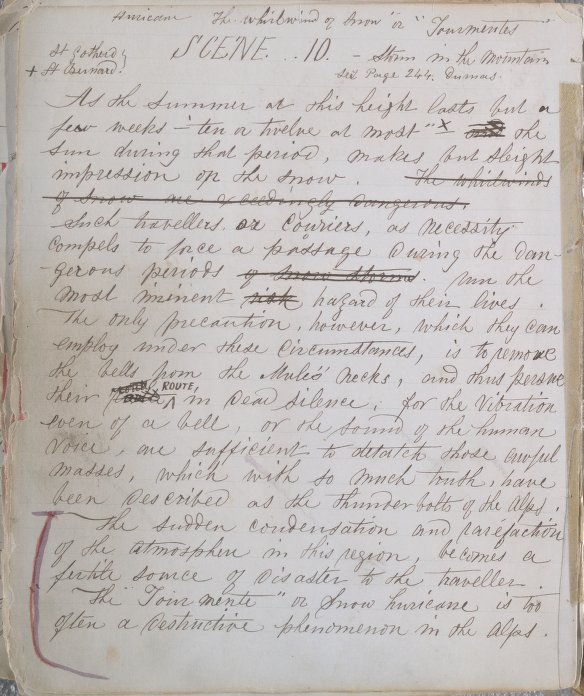 Hurricane The Whirlwind of Snow "or" Tourmentes"
St Gotherd
+ St Bernard.
SCENE. . . 10. - Storm in the Mountain
See Page 244. Dumas.
As the summer at this height lasts but a
few weeks - "ten or twelve at most" x the
sun during that period, makes but sleight
impression on the snow. The whirlwinds
of Snow are exceedingly dangerous.
Such travellers or Couriers, as necessity
compels to force a passage During the Dan-
gerous periods of Snow storms. run the
most iminent risk hazard of their lives.
The only precaution, however, which they can
employ under these Circumstances, is to remove
the bells from the Mules' necks, and thus persue
their ROUTE, in Dead Silence, for the Vibration
even of a bell, or the sound of the human
voice, are sufficient to detatch those awful
masses, which with so much truth, have
been Described as the thunderbolts of the Alps.
The sudden condensation and rarefaction
of the atmosphere in this region, becomes a
fertile source of Disaster to the traveller.
The "Tourmente" or Snow huricane is too
often a Destructive phenomenon in the Alps.